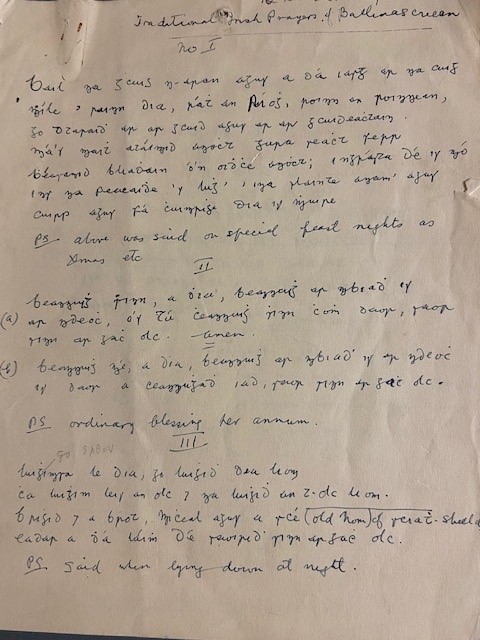 Traditional Irish Prayers of Ballinascreen
No I
Bail na gcuig n-aran agus a dá iasg ar na cuig
mile, roinn Dia, rát an Ríoġ, roinn an
go dtaraid ar ar gcuid agus ar ar gcuideactain.
Má's mait anoċt gura seaċt fearr
bliadain ó'n oidċe anoċt; i ngráda Dé is mó
ins na peacaide is luġ', i'na slainte anam' agus
cuirp agus fá Dia is Muire
PS above was said on special feast nights as
Xmas etc
II
(a) Beannuiġ sinn, a Dia, beannuiġ ar mbiaḋ is
ar ndeoċ, ó's Tú ċeannuiġ sinn ċom daor, saor
sinn ar gaċ olc. - amen.
(b) Beannuiġ mé, a Dia, beannuiġ ar mbiaḋ is ar ndeoċ
is daor a ceannuiġeaḋ iad, saor sinn ar gaċ olc.
PS ordinary blessing per annum.
III
go
Luiġimse le Dia, go luiġiḋ Dia liom
Ca luiġim leis an olc 7 na luiġiḋ an t-olc liom.
Briġid 7 a brot, Miceal agus a scé (old nom) of sciaṫ - shield
eadar a dá láim Dé sinn ar gaċ olc.
PS Said when lying down at night.